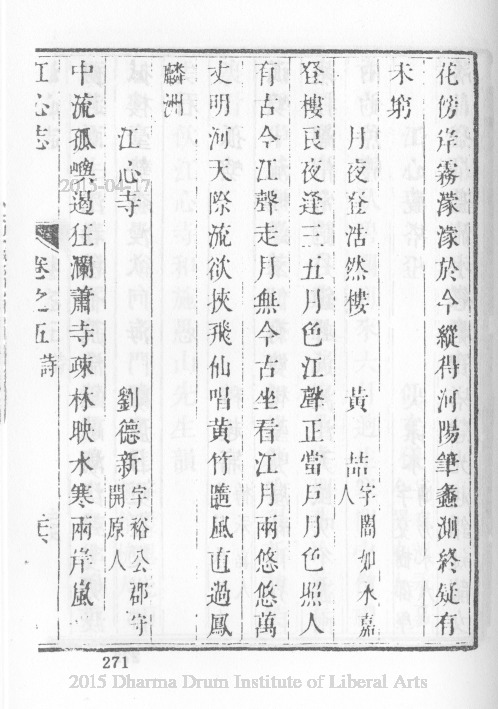 花傍岸霧濛濛於今縱得河陽筆蠡測終疑有
未窮
月夜登浩然樓 黃喆 字闇如永嘉人
登樓良夜逢三五月色江聲正當戶月色照人
有古今江聲走月無今古坐看江月兩悠悠萬
丈明河天際流欲挾飛仙唱黃竹隨風直過鳳
麟洲
江心寺 劉德新 字裕公郡守開原人
中流孤嶼遏狂瀾蕭寺疎林映水寒兩岸嵐
江心志 卷之五 詩
2015-04-17
271
2015 Dharma Drum Institute of Liberal Arts